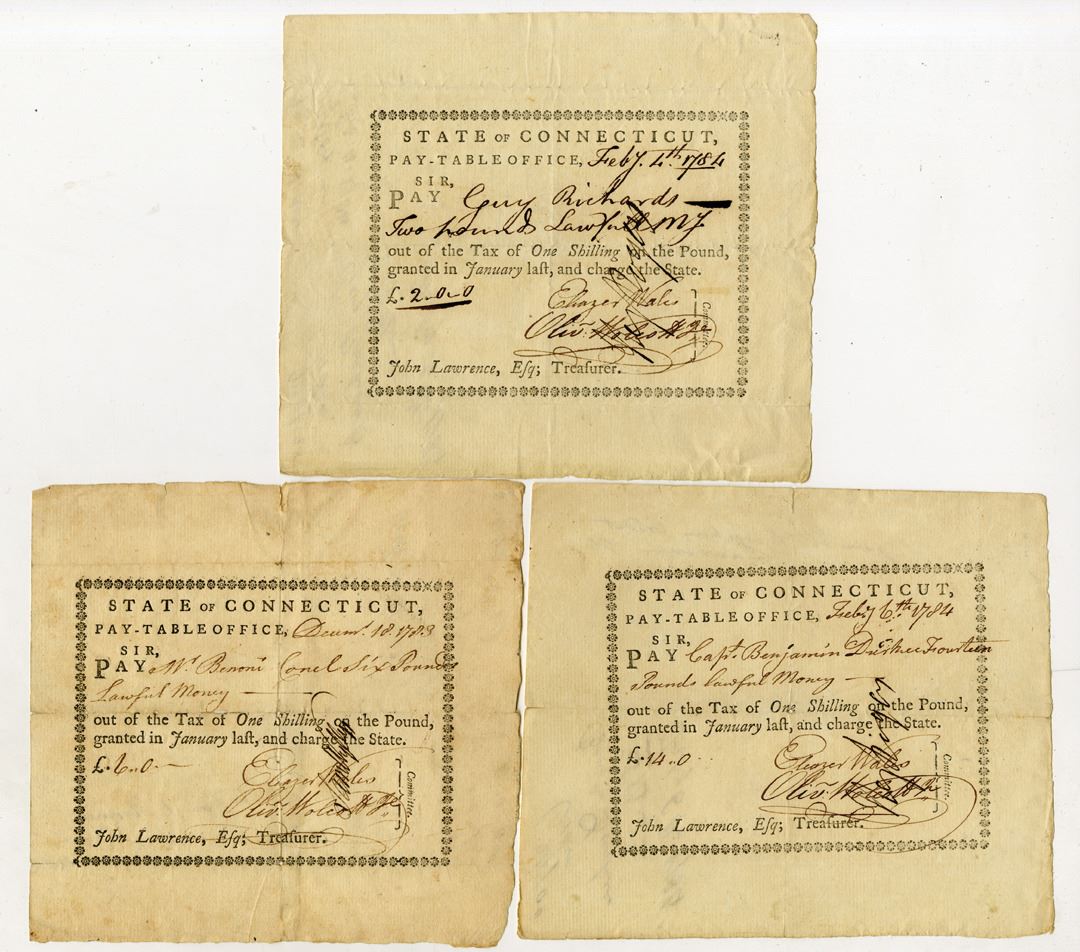 STATE OF CONNECTICUT,
PAY-TABLE OFFICE, Feby. 4th. 1784
SIR,
PAY Guy Richards
Two pounds Lawfull My
out of the Tax of One Shilling on the Pound,
granted in January laſt, and charge the State.
£. 2..0..0
Eliazer Wales
Olivr. Wolcott Jr
Committee.
John Lawrence, Eſq; Treaſurer.
STATE OF CONNECTICUT,
PAY-TABLE OFFICE, Decemr. 18. 1783
SIR,
PAY Mr Benoni Six Pounds
Lawful Money
out of the Tax of One Shilling on the Pound,
granted in January laſt, and charge the State.
£. 6..0..
Eliazer Wales
Olivr. Wolcott Jr.
Committee.
John Lawrence, Eſq; Treaſurer.
STATE OF CONNECTICUT,
PAY-TABLE OFFICE, Feby 6th. 1784
SIR,
PAY Capt. Benjamin Fourteen
Pounds lawful Money
out of the Tax of One Shilling on the Pound,
granted in January laſt, and charge the State.
£. 14..0
Eliazer Wales
Olivr. Wolcott Jr
Committee.
John Lawrence, Eſq; Treaſurer.